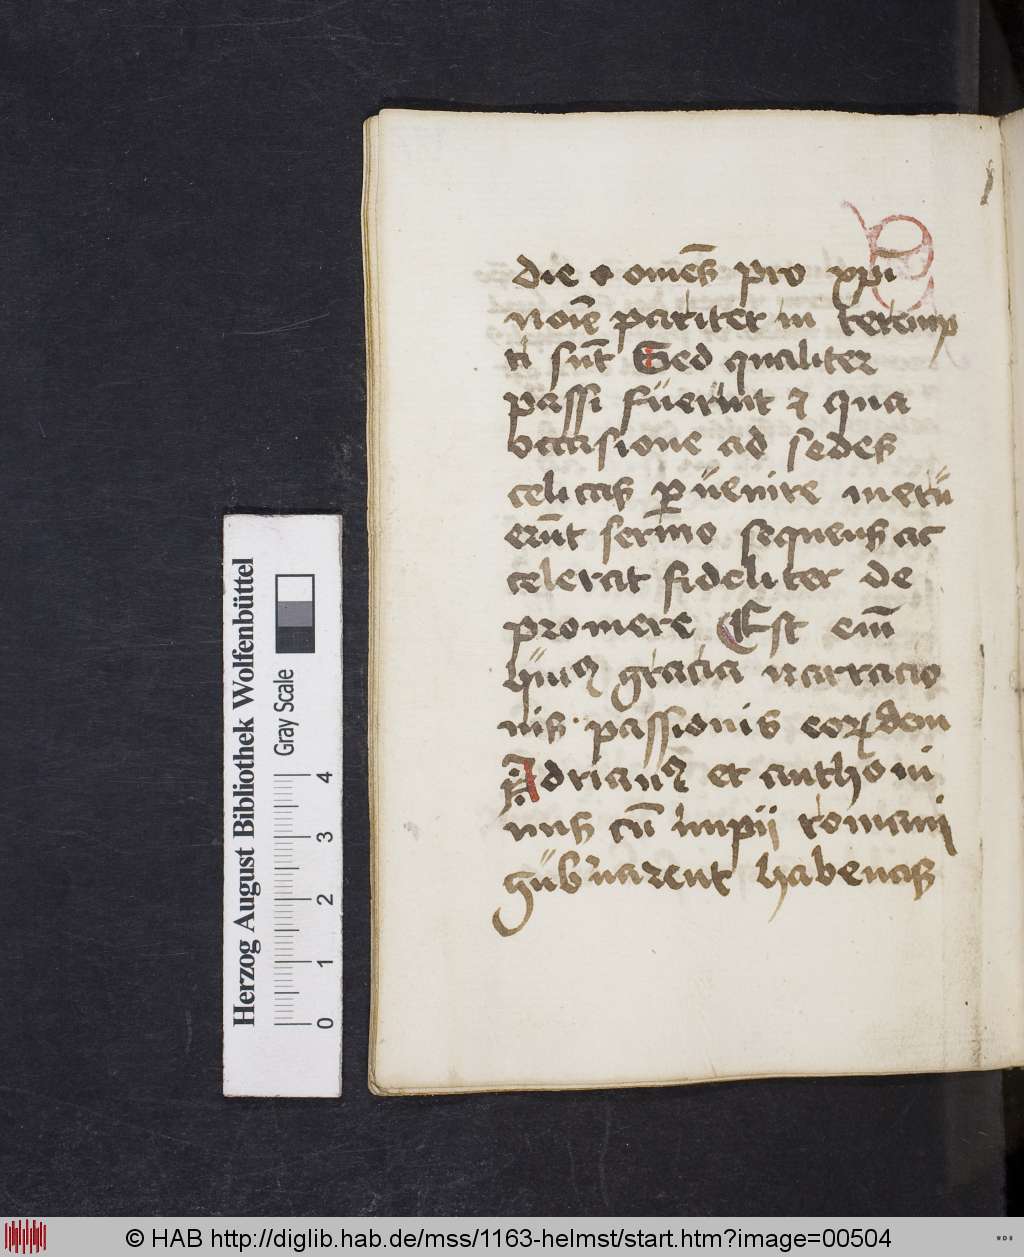 die omēs pro xp̄i
noīe pariter in teremp
ti sūt Sed qualiter
passi fuerūt ⁊ qua
occasione ad sedes
celicas ꝑuenire meru
erūt sermo sequens ac
celerat fideliter de
promere Est em̄
huiꝰ gracia narracio
nis passionis eoꝝdem
Adrianꝰ et anthoni
nus cū impii romani
gubernarent habenas
Herzog August Bibliothek Wolfenbüttel
Gray Scale
0 1 2 3 4
© HAB http://diglib.hab.de/mss/1163-helmst/start.htm?image=00504